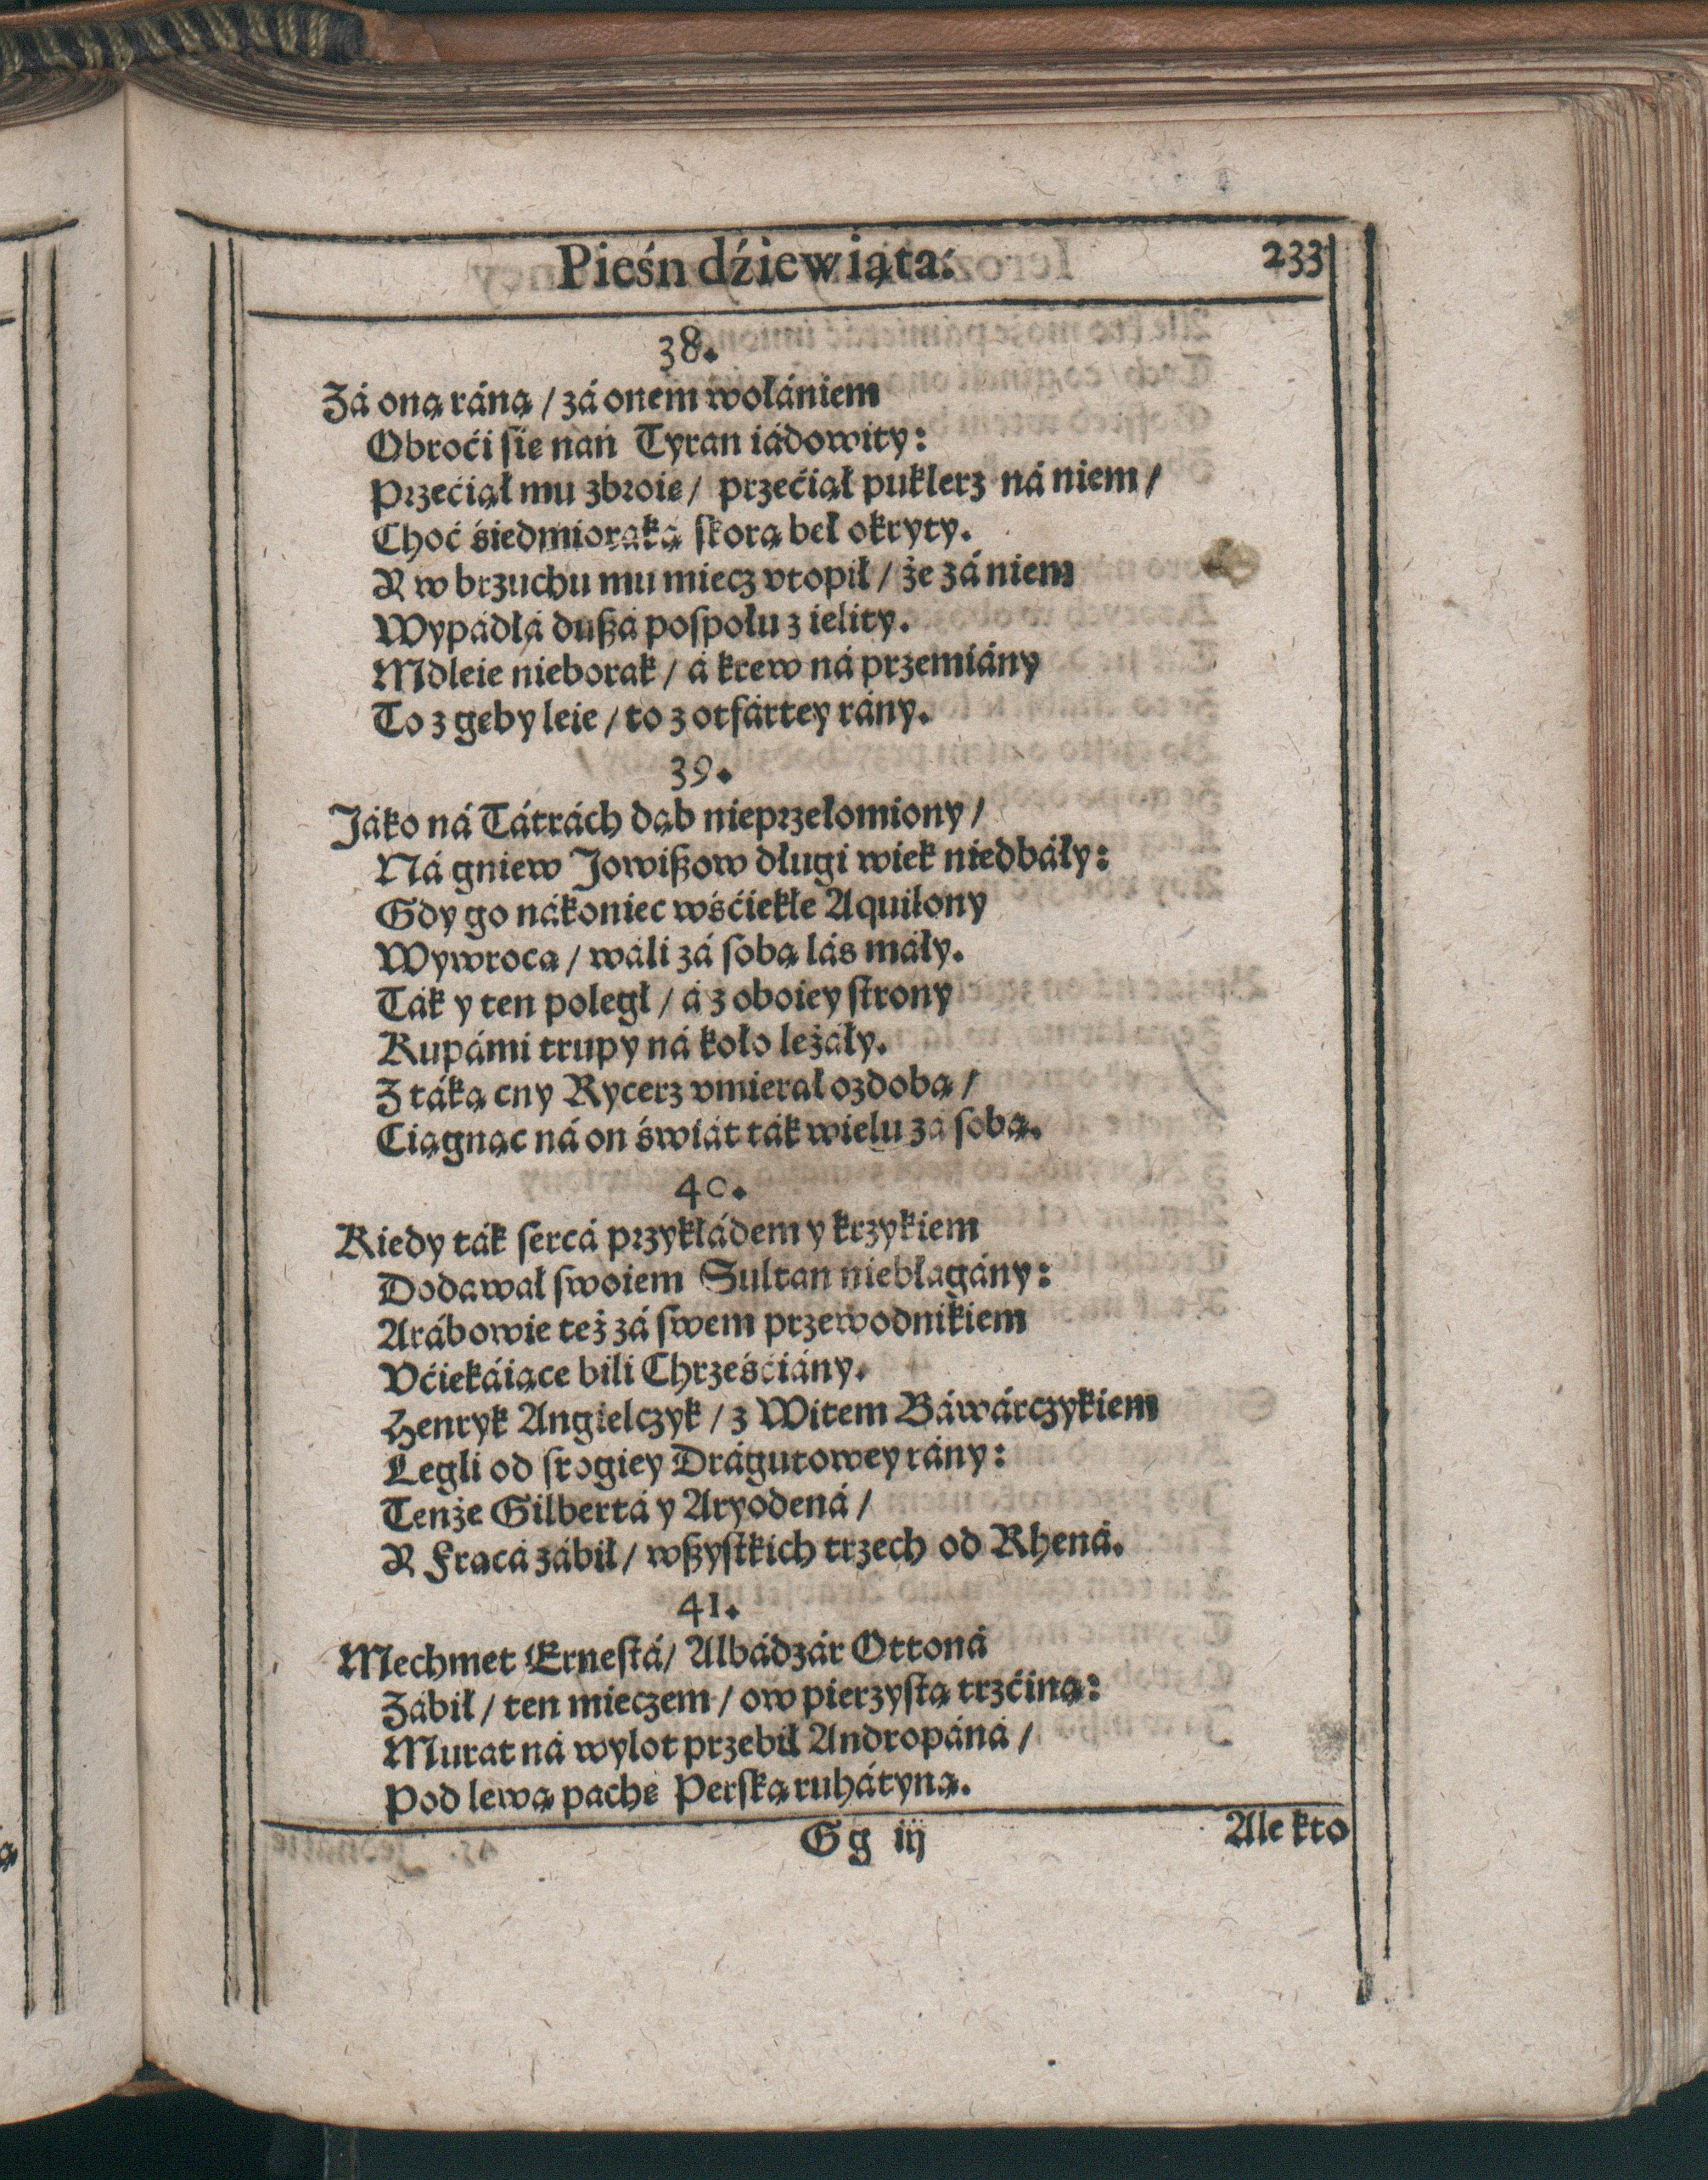 Pieśń dźiewiąta: 233
38.
Zá oną ráną / zá onem wołániem
Obroći ſie nań Tyran iádowity:
Przećiął mu zbroię / przećiął puklerz ná niem /
Choć śiedmioraką ſkorą beł okryty.
Y w brzuchu mu miecz vtopił / że zá niem
Wypádłá dußá poſpołu z ielity.
Mdleie nieborak / á krew ná przemiány
To z gęby leie / to z otfártey rány.
39.
Jáko ná Tátrách dąb nieprzełomiony /
Ná gniew Jowißow długi wiek niedbáły:
Gdy go nákoniec wśćiekłe Aquilony
Wywrocą / wáli zá ſobą lás máły.
Ták y ten poległ / á z oboiey ſtrony
Kupámi trupy ná koło leżáły.
Z táką cny Rycerz vmierał ozdobą /
Ciągnąc ná on świát ták wielu zá ſobą.
40.
Kiedy ták ſercá przykłádem y krzykiem
Dodawał ſwoiem Sultan niebłagány:
Arábowie też zá ſwem przewodnikiem
Vćiekáiące bili Chrześćiány.
Henryk Angielczyk / z Witem Báwárczykiem
Legli od ſrogiey Drágutowey rány:
Tenże Gilbertá y Aryodená /
Y Fracá zábił / wßyſtkich trzech od Rhená.
41.
Mechmet Erneſtá / Albádzár Ottoná
Zábił / ten mieczem / ow pierzyſtą trzćiną:
Murat ná wylot przebił Andropáná /
Pod lewą pachę Perſką ruhátyną.
Gg iij Ale kto